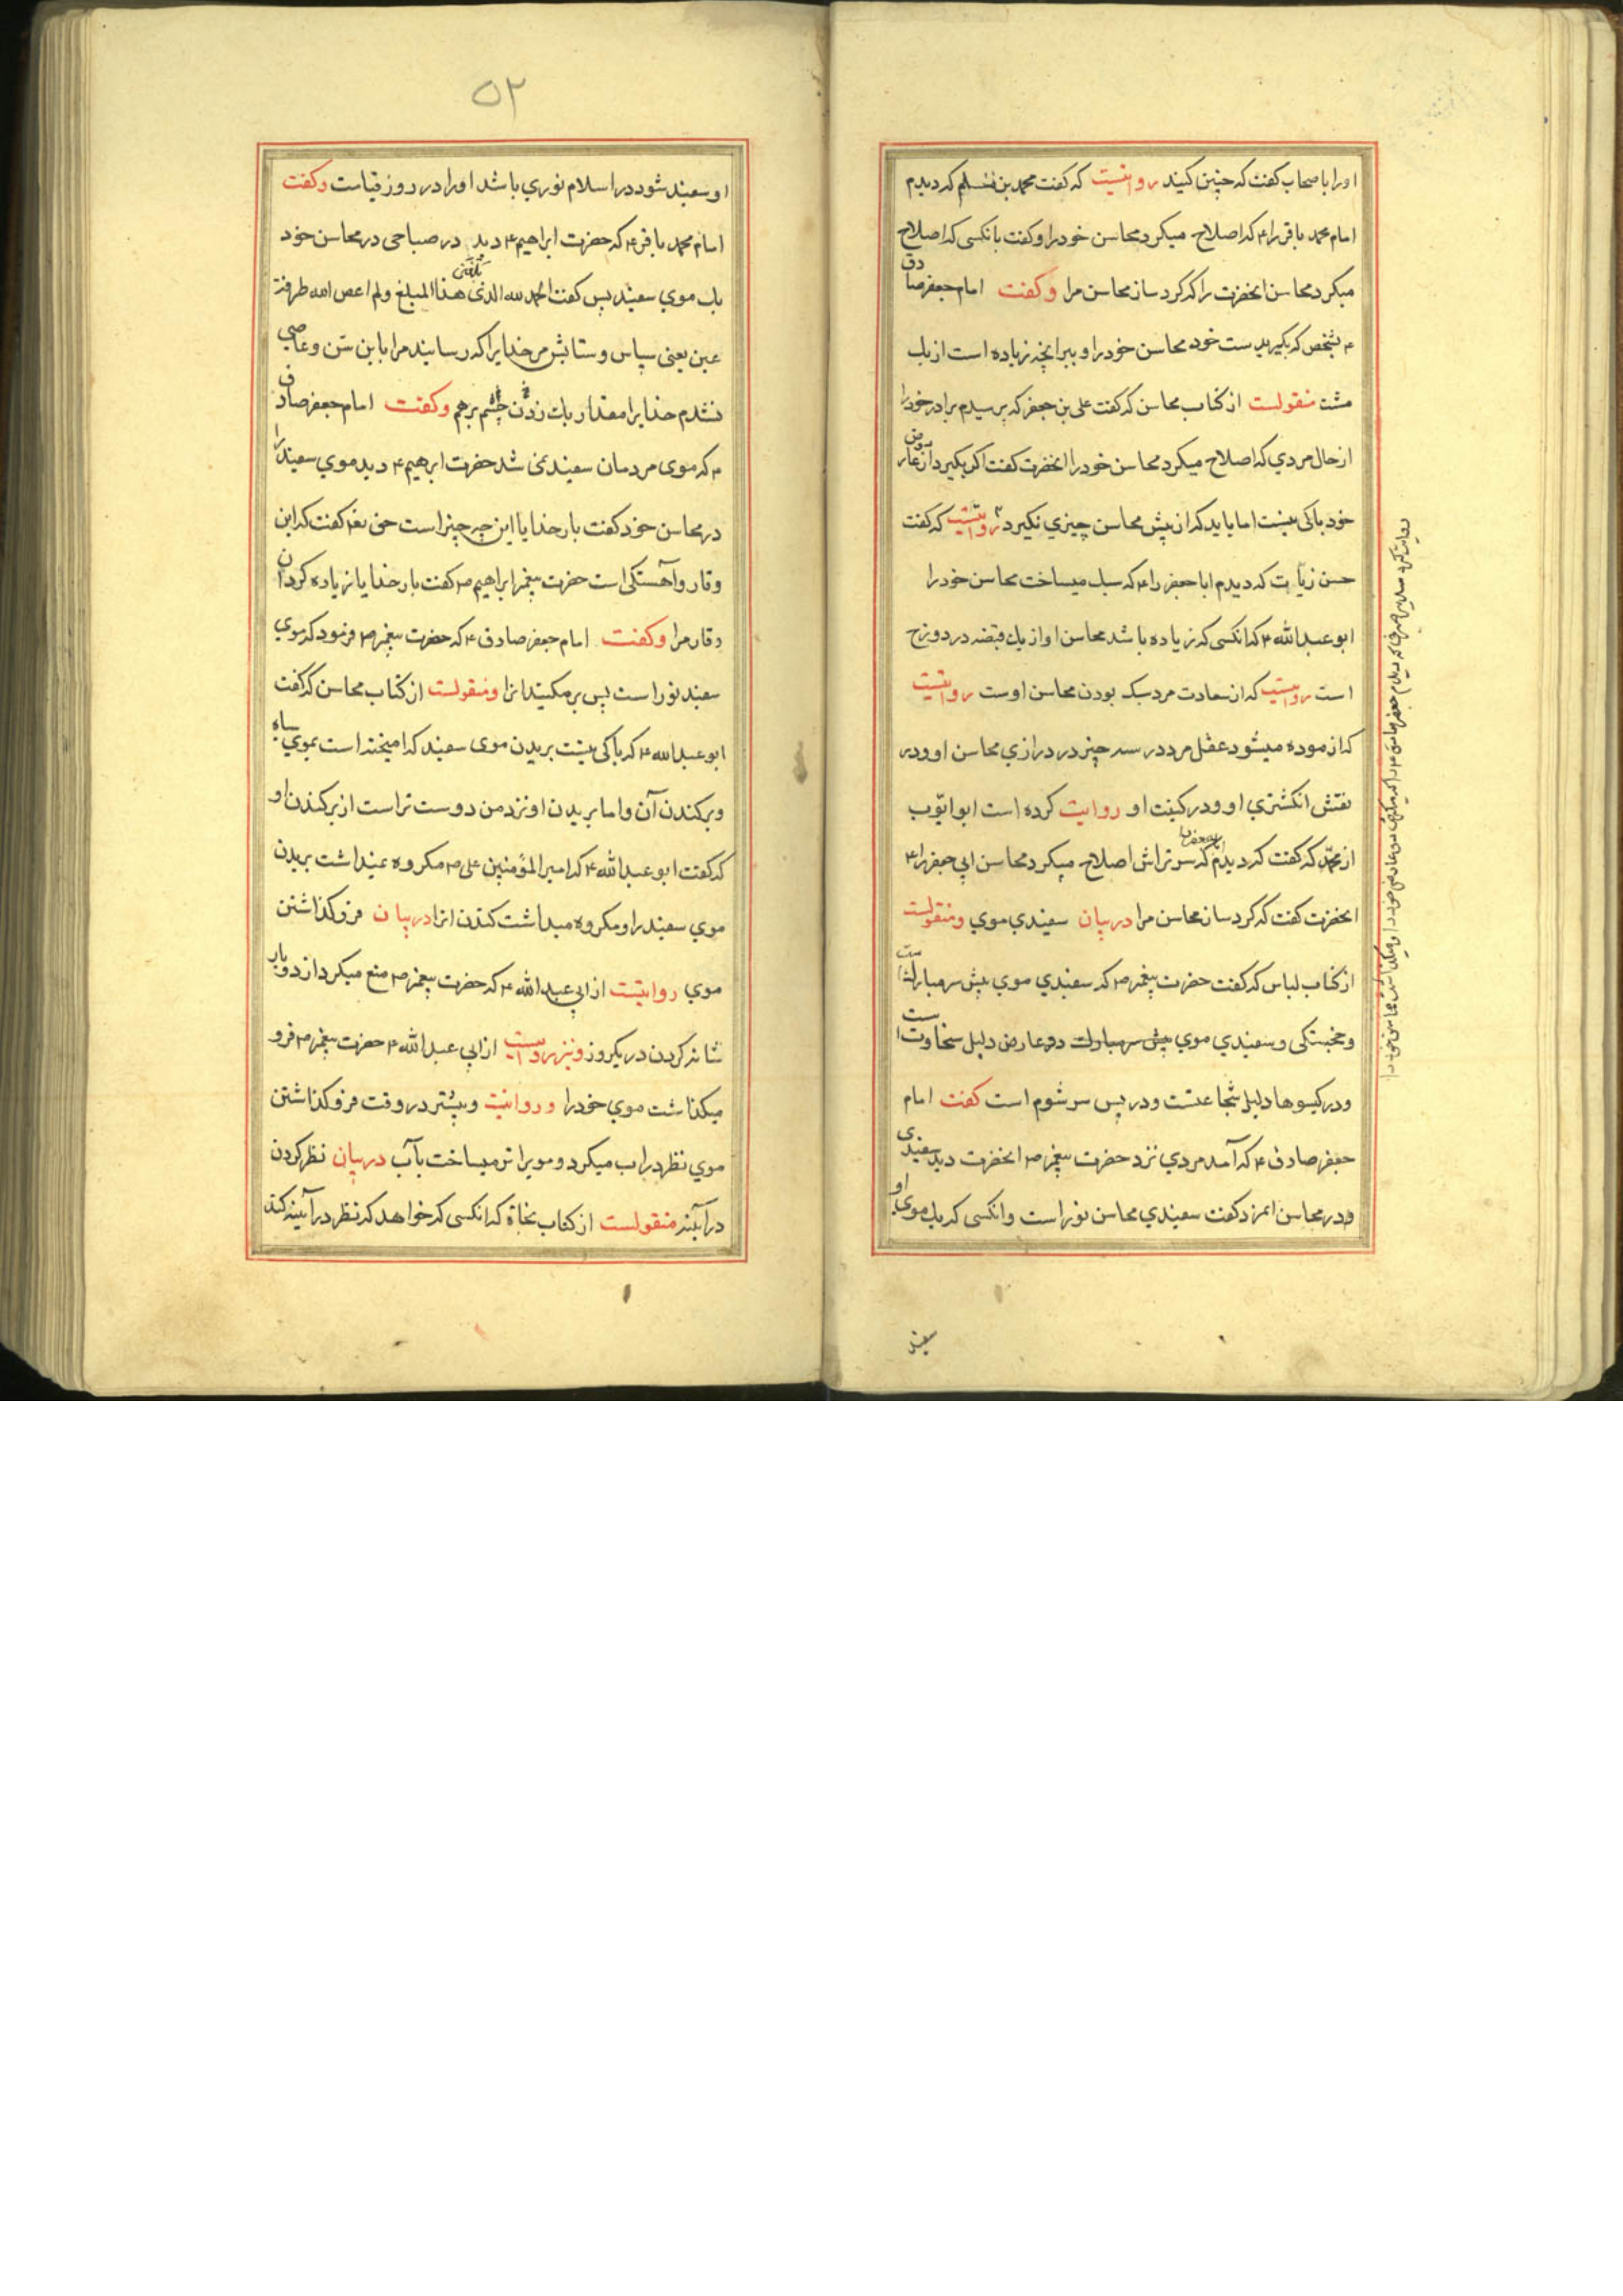 او را باصحاب کفت که چنین کنید روایتیست که کفت محمد بن مسلم که دیدم
امام محمد باقر را ۴ که اصلاح میکرد محاسن خود را و کفت بانکسی که اصلاح
میکرد محاسن انحضرت را که کرد ساز محاسن مرا و کفت امام جعفر صادق
۴ بشخص که بکیر بدست خود محاسن خود را و ببر انچه زیاده است از یک
مشت منقولست از کتاب محاسن که کفت علی بن جعفر که پرسیدم برادر خود را
از حال مردی که اصلاح میکرد محاسن خود را انحضرت کفت اکر بکیرد از عارض
خود باکی نیست اما باید که از پیش محاسن چیزی نکیرد روایتیست که کفت
حسن زیات که دیدم ابا جعفر را ۴ که سبک میساخت محاسن خود را
ابو عبد الله ۴ که انکسی که زیاده باشد محاسن او از یک قبضه در دوزخ
است روایتیست که از سعادت مرد سبک بودن محاسن اوست روایتیست
که ازموده میشود عقل مرد در سه چیز در درازی محاسن او و در
نقش انکشتری او و در کنیت او روایت کرده است ابو ایّوب
از محمّد که کفت که دیدم که سر تراش اصلاح میکرد محاسن ابی جعفر را ۴
انحضرت کفت که کرد ساز محاسن مرا در بیان سفیدی موی و منقولست
از کتاب لباس که کفت حضرت پیغمبر ص که سفیدی موی پیش سر مبارک است
و خجستکی و سفیدی موی پیش سر مبارک دو عارض دلیل سخاوت است
و در کیسوها دلیل شجاعتست و در پس سر شوم است کفت امام
جعفر صادق ۴ که آمد مردی نزد حضرت پیغمبر ص انحضرت دید سفیدی
در محاسن انمرد کفت سفیدی محاسن نور است و انکسی که یک موی او
سفید
۵۲
او سفید شود در اسلام نوری باشد او را در روز قیامت و کفت
امام محمد باقر ۴ که حضرت ابراهیم ۴ دید در صباحی در محاسن خود
یک موی سفید پس کفت الحمد لله الذی بلغنی هذا المبلغ و لم اعص الله طرفة
عین یعنی سپاس و ستایش مر خدایرا که رسانید مرا باین سّن و عاصی
نشدم خدایرا مقدار یک زدن چشم بر هم و کفت امام جعفر صادق
۴ که موی مردمان سفید نمی شد حضرت ابرهیم ۴ دید موی سفید را
در محاسن خود کفت بار خدایا این چه چیز است حق تعم کفت که این
وقار و آهستکی است حضرت پیغمبر ابراهیم ص کفت بار خدایا زیاده کردان
وقار مرا و کفت امام جعفر صادق ۴ که حضرت پیغمبر ص فرمود که موی
سفید نور است پس بر مکنید انرا و منقولست از کتاب محاسن که کفت
ابو عبد الله ۴ که باکی نیست بریدن موی سفید که امیخته است بموی سیاه
و بر کندن آن و اما بریدن او نزد من دوست تر است از برکندن او
که کفت ابو عبد الله ۴ که امیر المؤمنین علی ص مکروه نمیداشت بریدن
موی سفید را و مکروه میداشت کندن انرا در بیان فرو کذاشتن
موی روایتیست از ابی عبد الله ۴ که حضرت پیغمبر ص منع میکرد از دو بار
شانه کردن در یکروز و نیز روایتیست از ابی عبد الله ۴ حضرت پیغمبر ص فرو
میکذاشت موی خود را و روایتیست و بیشتر در وقت فرو کذاشتن
موی نظر در اب میکرد و مویرا تر میساخت بآب در بیان نظر کردن
در آینه منقولست از کتاب نجاة که انکسی که خواهد که نظر در آیینه کند